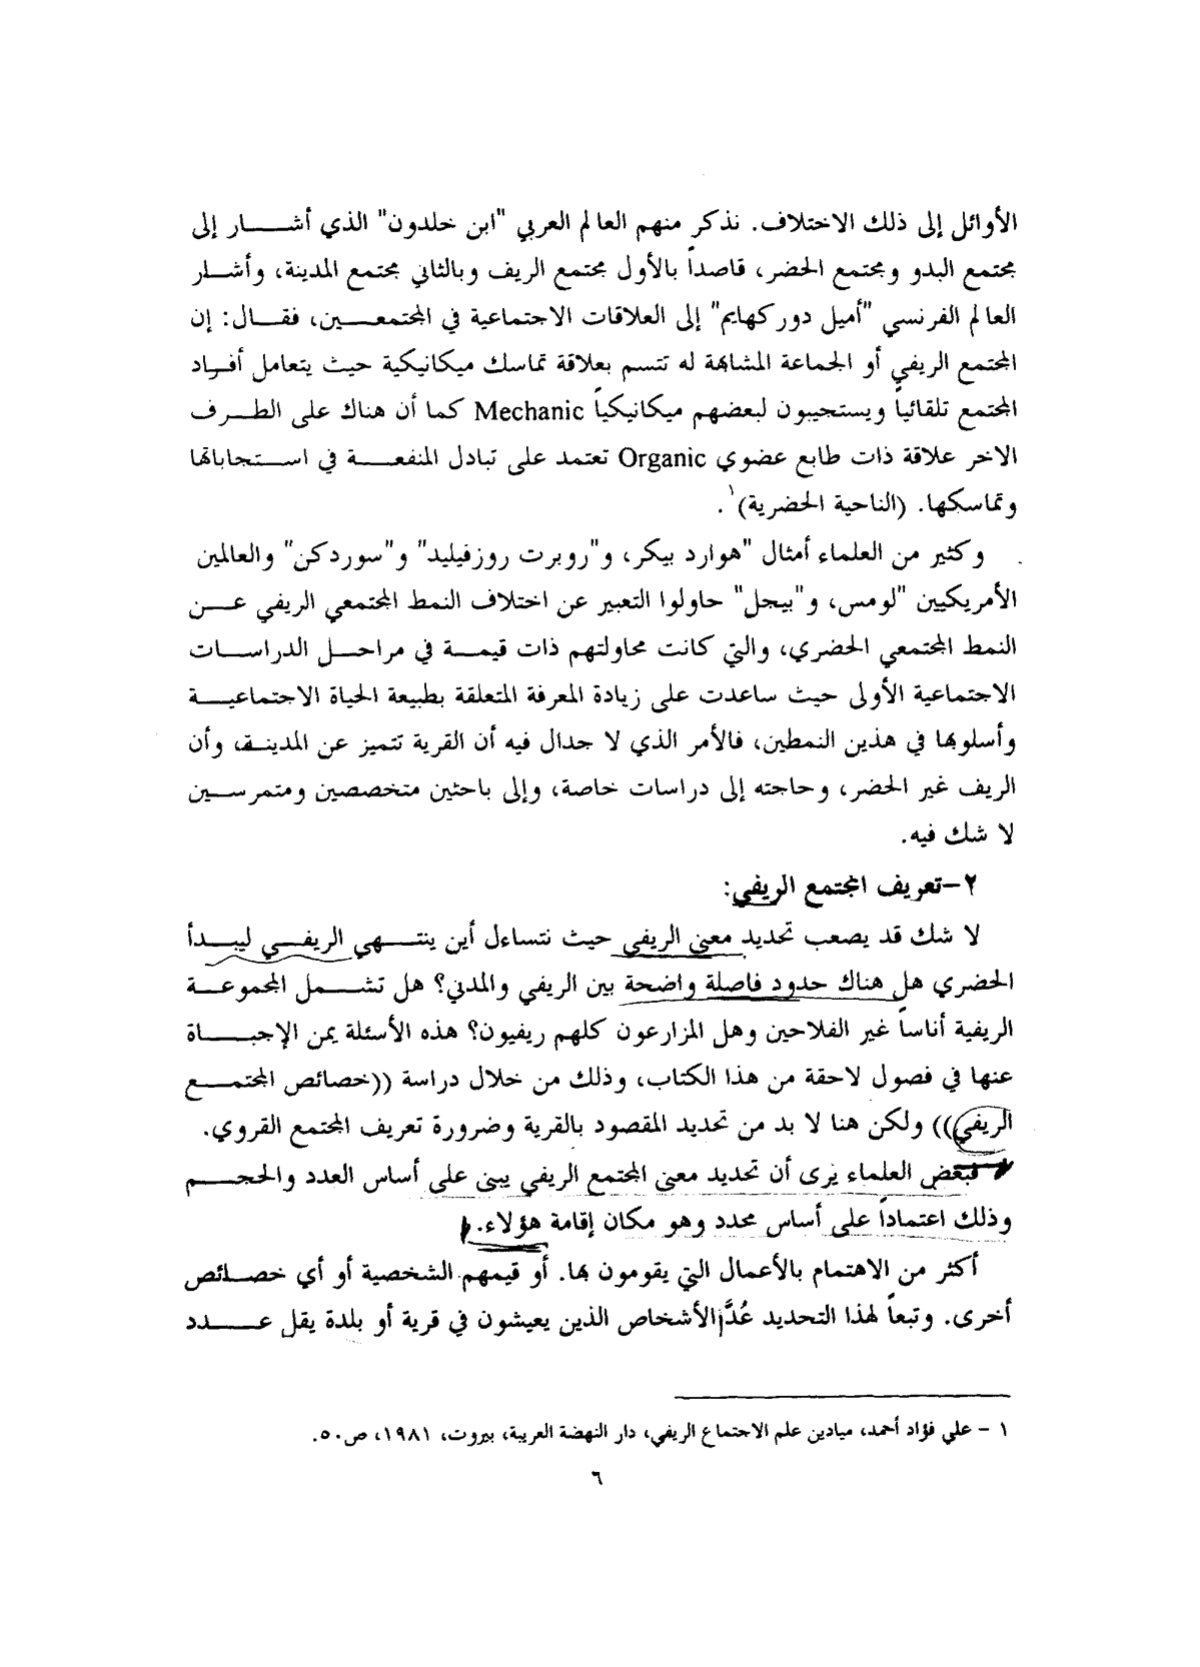 الأوائل إلى ذلك الاختلاف. نذكر منهم العالم العربي "ابن خلدون" الذي أشار إلى
مجتمع البدو ومجتمع الحضر، قاصداً بالأول مجتمع الريف وبالثاني مجتمع المدينة، وأشار
العالم الفرنسي "أميل دوركهايم" إلى العلاقات الاجتماعية في المجتمعين، فقال: إن
المجتمع الريفي أو الجماعة المشابهة له تتسم بعلاقة تماسك ميكانيكية حيث يتعامل أفراد
المجتمع تلقائياً ويستجيبون لبعضهم ميكانيكياً Mechanic كما أن هناك على الطرف
الاخر علاقة ذات طابع عضوي Organic تعتمد على تبادل المنفعة في استجاباتها
وتماسكها. (الناحية الحضرية)١.
وكثير من العلماء أمثال "هوارد بيكر، و"روبرت روزفيليد" و"سوردكن" والعالمين
الأمريكيين "لومس، و"بيجل" حاولوا التعبير عن اختلاف النمط المجتمعي الريفي عن
النمط المجتمعي الحضري، والتي كانت محاولتهم ذات قيمة في مراحل الدراسات
الاجتماعية الأولى حيث ساعدت على زيادة المعرفة المتعلقة بطبيعة الحياة الاجتماعية
وأسلوبها في هذين النمطين، فالأمر الذي لا جدال فيه أن القرية تتميز عن المدينة، وأن
الريف غير الحضر، وحاجته إلى دراسات خاصة، وإلى باحثين متخصصين ومتمرسين
لا شك فيه.
٢-تعريف المجتمع الريفي:
لا شك قد يصعب تحديد معنى الريفي حيث نتساءل أين ينتهي الريفي ليبدأ
الحضري هل هناك حدود فاصلة واضحة بين الريفي والمدني؟ هل تشمل المجموعة
الريفية أناساً غير الفلاحين وهل المزارعون كلهم ريفيون؟ هذه الأسئلة يمن الإجباة
عنها في فصول لاحقة من هذا الكتاب، وذلك من خلال دراسة ((خصائص المجتمع
الريفي)) ولكن هنا لا بد من تحديد المقصود بالقرية وضرورة تعريف المجتمع القروي.
فبعض العلماء يرى أن تحديد معنى المجتمع الريفي يبنى على أساس العدد والحجم
وذلك اعتماداً على أساس محدد وهو مكان إقامة هؤلاء.
أكثر من الاهتمام بالأعمال التي يقومون بها. أو قيمهم الشخصية أو أي خصائص
أخرى. وتبعاً لهذا التحديد عُدَّ الأشخاص الذين يعيشون في قرية أو بلدة يقل عدد
١ - علي فؤاد أحمد، ميادين علم الاجتماع الريفي، دار النهضة العربية، بيروت، ١٩٨١، ص٥٠.
٦